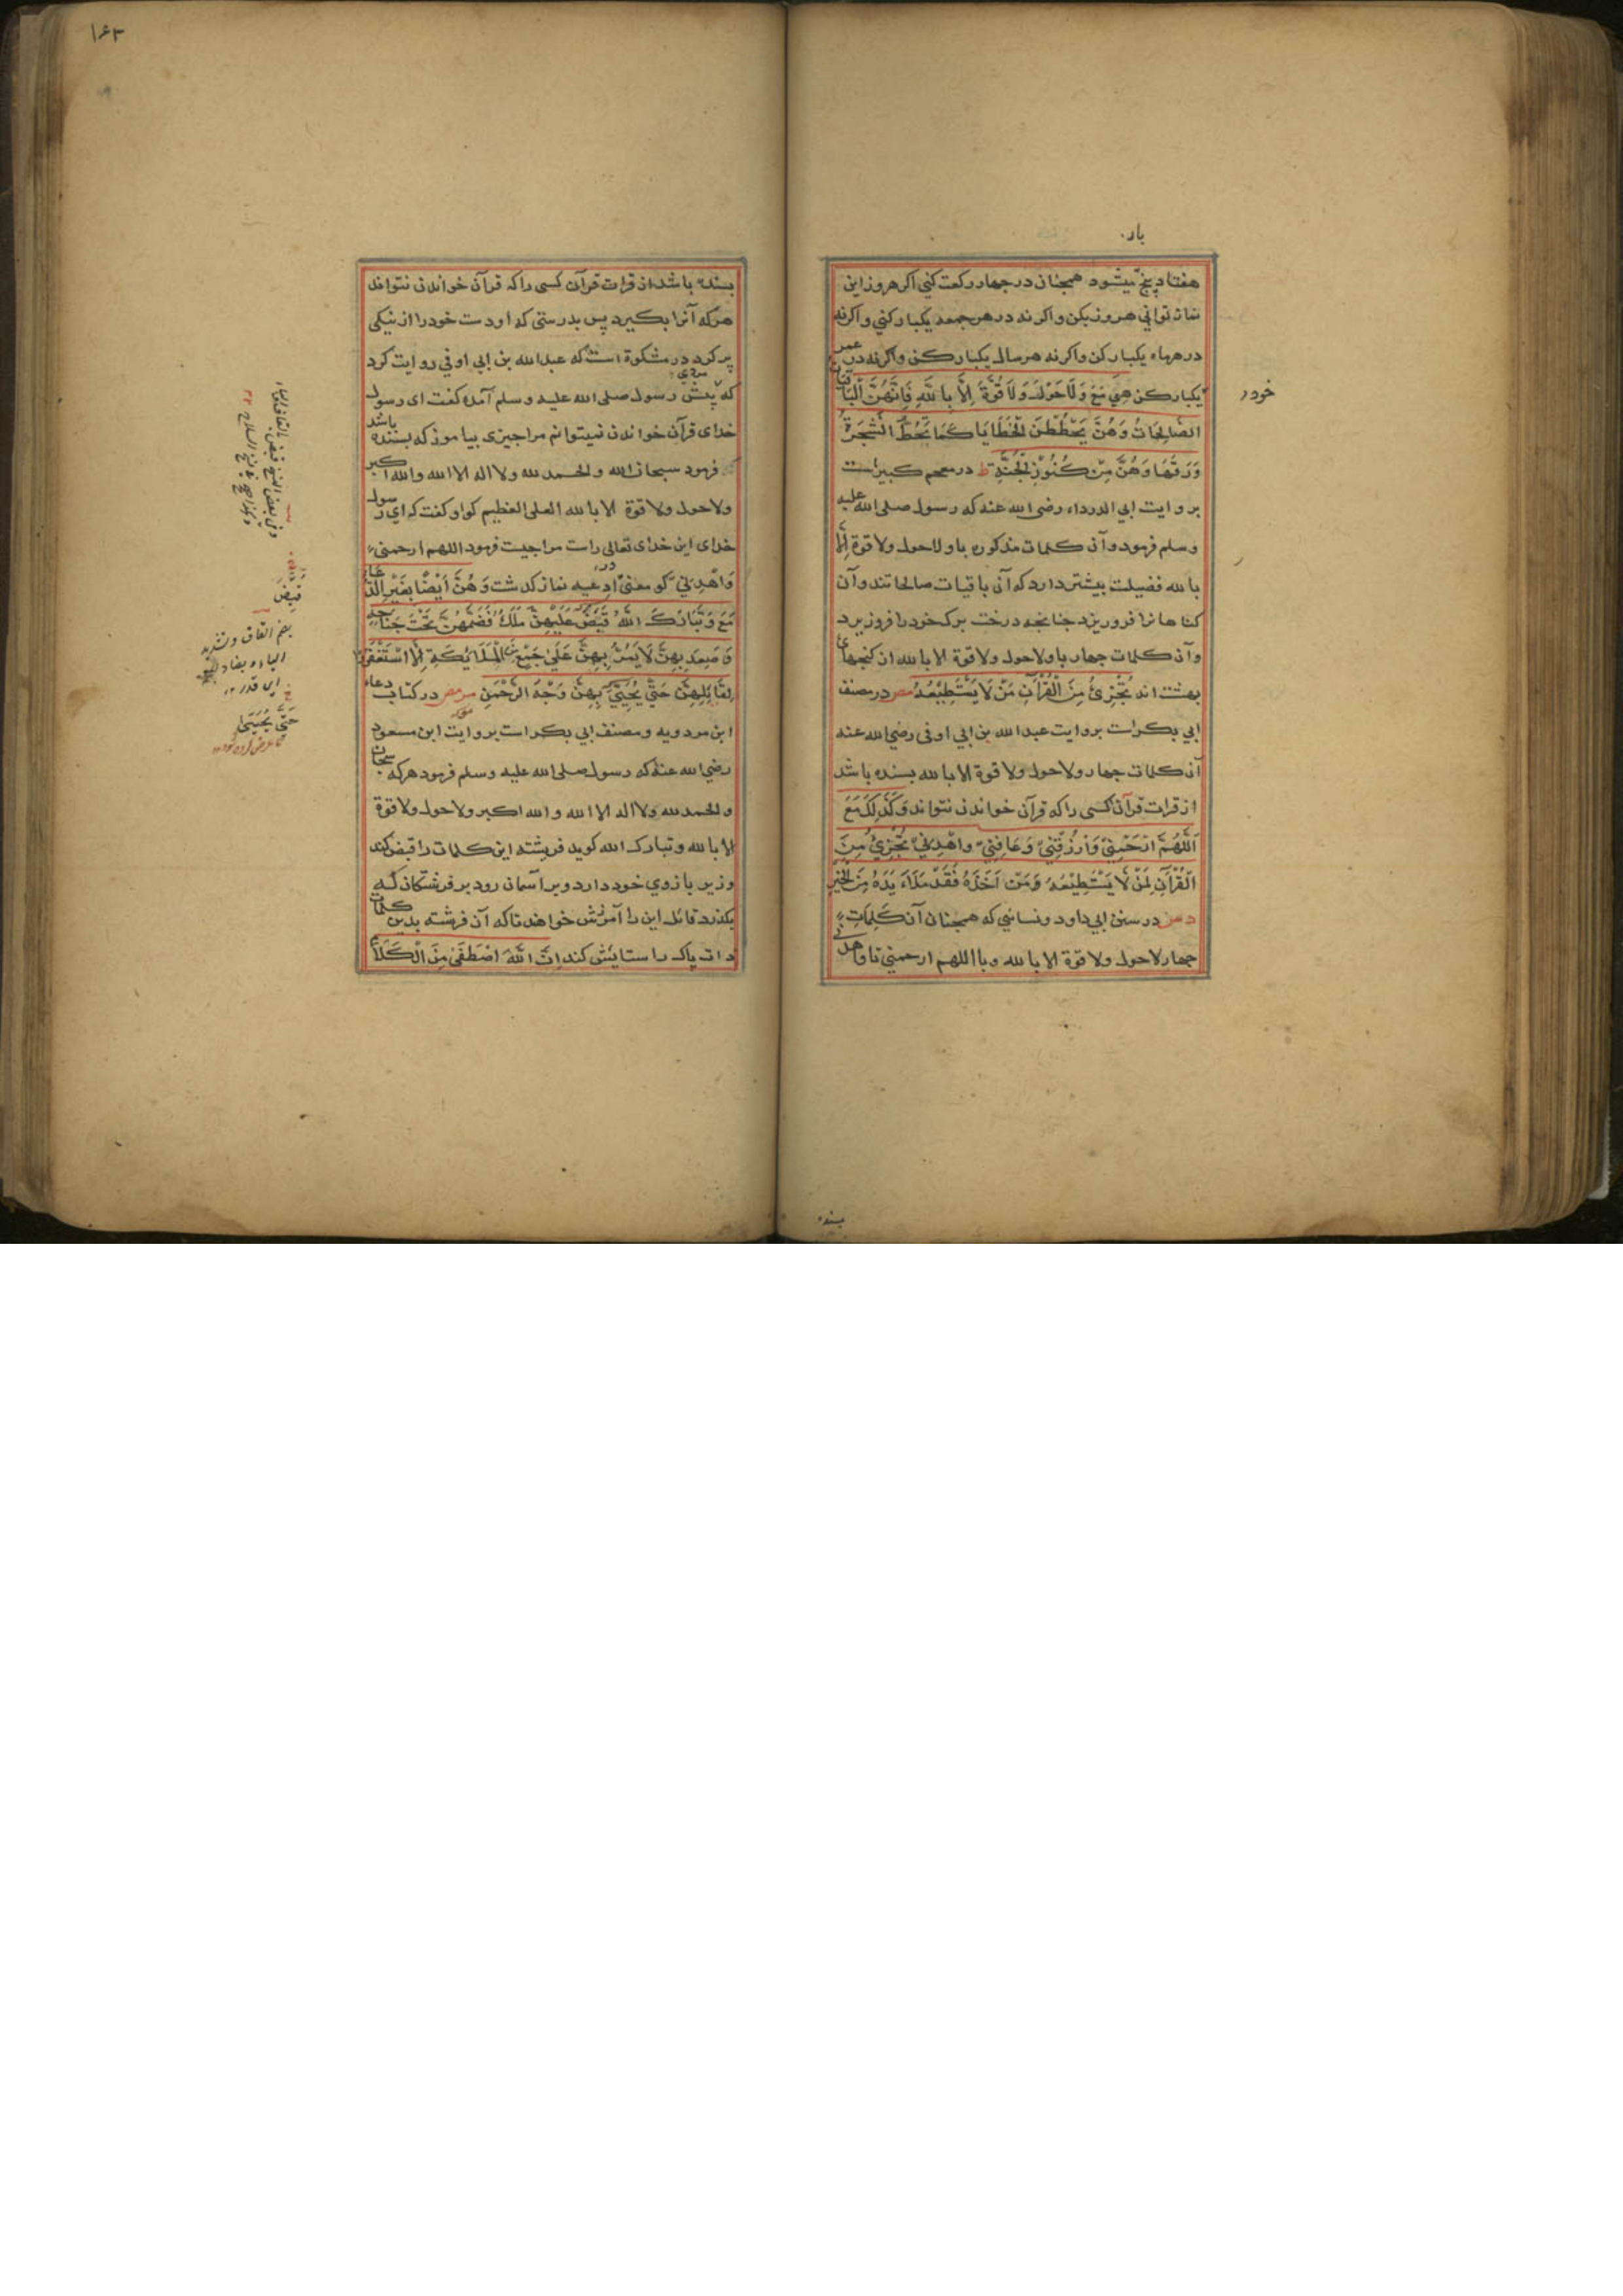 بار
هفتاد پنج میشود همچنان در چهار رکعت کنی اکر هر روز این
نماز توانی هر روز بکن و اکر نه در هر جمعه یکبار کنی و اکر نه
در هر ماه یکبار کن و اکر نه هر سال یکبار کن و اکر نه در عمر
یکبار کن هِيَ مَعَ وَلَا حَوْلَ وَلَا قُوَّةَ اِلَّا بِاللّٰهِ فَاِنَّهُنَّ الْبَاقِيَاتُ
الصَّالِحَاتُ وَهُنَّ يَحْطُطْنَ الْخَطَايَا كَمَا تَحُطُّ الشَّجَرَةُ
وَرَقَهَا وَهُنَّ مِنْ كُنُوْزِ الْجَنَّةِ ط در معجم کبیر است
بروایت ابی الدرداء رضی الله عنه که رسول صلی الله علیه
وسلم فرمود و آن کلمات مذکوره با ولا حول ولا قوة الا
بالله فضیلت بیشتر دارد که آن باقیات صالحاتند و آن
کناهانرا فرو ریزد چنانچه درخت برک خود را فرو ریزد
و آن کلمات چهار با ولا حول ولا قوة الا بالله از کنجهای
بهشت اند تُجْزِئُ مِنَ الْقُرْآنِ مَنْ لَا يَسْتَطِيْعُهُ مص در مصنف
ابی بکر است بروایت عبد الله بن ابی اوفی رضی الله عنه
آن کلمات چهار ولا حول ولا قوة الا بالله بسنده باشد
از قرات قرآن کسی را که قرآن خواندن نتواند وَكَذٰلِكَ مَعَ
اَللّٰهُمَّ ارْحَمْنِيْ وَارْزُقْنِيْ وَعَافِنِيْ وَاهْدِنِيْ تُجْزِئُ مِنَ
الْقُرْآنِ لِمَنْ لَا يَسْتَطِيْعُهُ وَمَنْ اَخَذَهُ فَقَدْ مَلَاَ يَدَهُ مِنَ الْخَيْرِ
د س در سنن ابی داود و نسائی که همچنان آن کلمات
چهار لا حول ولا قوة الا بالله و با اللهم ارحمنی تا واهدنی
خود ر
بسند
۱۶۳
بسنده باشد از قرات قرآن کسی را که قرآن خواندن نتواند
هر که آنرا بکیرد پس بدرستی که او دست خود را از نیکی
پر کرد در مشکوة است که عبد الله بن ابی اوفی روایت کرد
که پیش رسول صلی الله علیه وسلم مردی آمد کفت ای رسول
خدای قرآن خواندن نمیتوانم مرا چیزی بیاموز که بسنده باشد
فرمود سبحان الله والحمد لله ولا اله الا الله والله اکبر
ولا حول ولا قوة الا بالله العلی العظیم کو او کفت که ای رسول
خدای این خدای تعالی راست مرا چیست فرمود اللهم ارحمنی
وَاهْدِنِيْ کو معنی در ادعیه نماز کذشت وَهُنَّ اَيْضًا بِغَيْرِ الدُّعَاءِ
مَعَ وَتَبَارَكَ اللّٰهُ قَبَضَ عَلَيْهِنَّ مَلَكٌ فَضَمَّهُنَّ تَحْتَ جَنَاحِهِ
وَصَعِدَ بِهِنَّ لَا يَمُرُّ بِهِنَّ عَلٰى جَمْعٍ مِنَ الْمَلَائِكَةِ اِلَّا اسْتَغْفَرُوْا
لِقَائِلِهِنَّ حَتّٰى يُحَيِّيَ بِهِنَّ وَجْهَ الرَّحْمٰنِ مو مص در کتاب دعاء
ابن مردویه و مصنف ابی بکر است بروایت ابن مسعود
رضی الله عنه که رسول صلی الله علیه وسلم فرمود هر که سبحان
والحمد لله ولا اله الا الله والله اکبر ولا حول ولا قوة
الا بالله وتبارک الله کوید فرشته این کلمات را قبض کند
و زیر بازوی خود دارد و بر آسمان رود بر فرشتکان که
بکذرد قائل این را آمرزش خواهند تا که آن فرشته بدین کلمات
ذات پاک را ستایش کند اِنَّ اللّٰهَ اصْطَفٰى مِنَ الْكَلَامِ
قبض
بضم القاف وتشدید
الباء وبضاد
ای قدر ۱۲